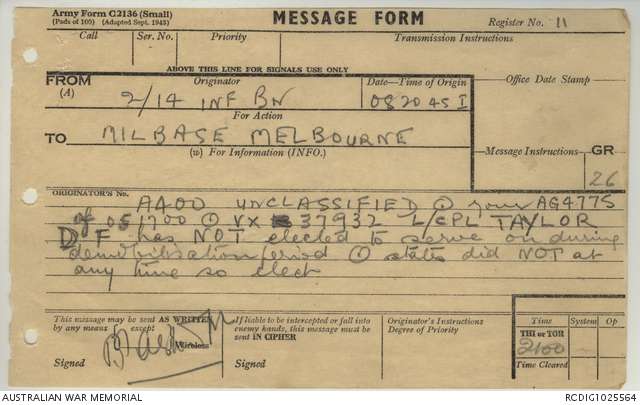 Army Form C2136 (Small)
(Pads of 100) (Adapted Sept. 1943)
MESSAGE FORM
Register No. 11
Call Ser. No. Priority Transmission Instructions
ABOVE THIS LINE FOR SIGNALS USE ONLY
FROM
(A)
Originator
Date—Time of Origin
Office Date Stamp
2/14 INF BN
082045 I
For Action
TO
MILBASE MELBOURNE
(W) For Information (INFO.)
Message Instructions
GR
26
ORIGINATOR'S No.
A400 UNCLASSIFIED ⊙ your AG4775
of 051700 ⊙ VX 37932 L/CPL TAYLOR
D F has NOT elected to serve on during
demobilisation period ⊙ states did NOT at
any time so elect
This message may be sent AS WRITTEN
by any means except Wireless
Signed
If liable to be intercepted or fall into
enemy hands, this message must be
sent IN CIPHER
Signed
Originator's Instructions
Degree of Priority
Time System Op
THI or TOR
2100
Time Cleared
AUSTRALIAN WAR MEMORIAL
RCDIG1025564